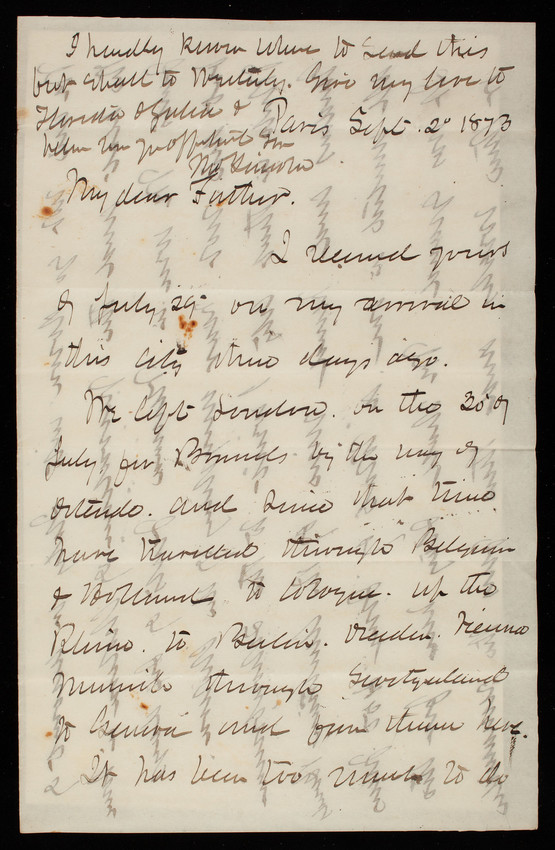 I hardly know where to send this
but shall to Westerly. Give my love to
Florida & Julia &
believe me yr affectionate son
McK Lincoln
Paris Sept. 2d 1873
My dear Father.
I received yours
of July 29 on my arrival in
this city three days ago.
We left London. on the 30 of
July for Brussels by the way of
Ostende. and since that time
have traveled through Belgium
& Holland to Cologne. up the
Rhine. to Berlin. Dresden. Vienna
Munich through Switzerland
to Geneva and from thence here.
It has been too much to do